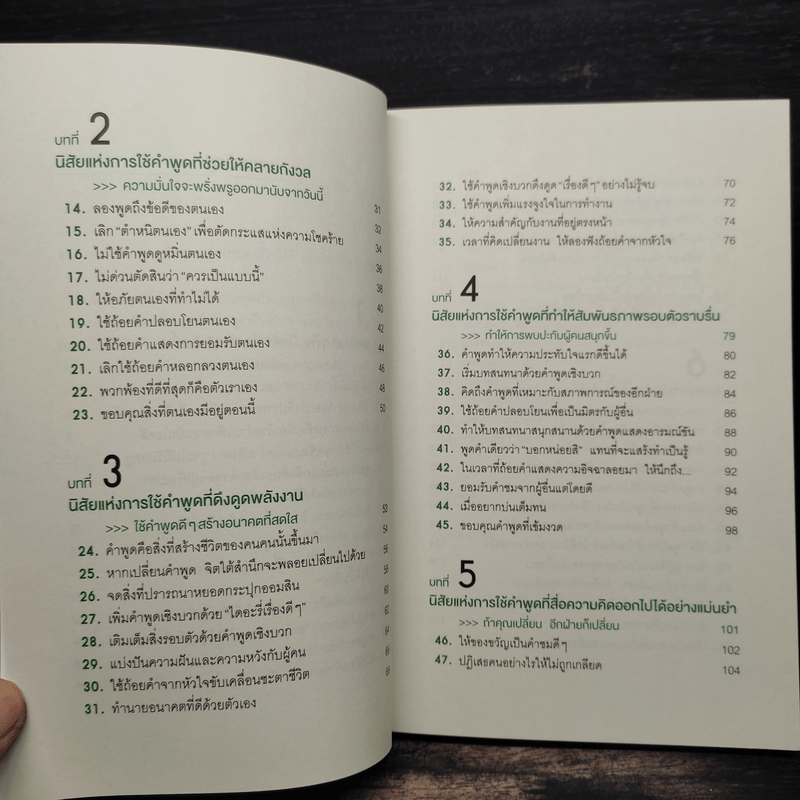 บทที่ 2
นิสัยแห่งการใช้คำพูดที่ช่วยให้คลายกังวล
>>> ความมั่นใจจะพรั่งพรูออกมานับจากวันนี้ 31
14. ลองพูดถึงข้อดีของตนเอง 32
15. เลิก "ตำหนิตนเอง" เพื่อตัดกระแสแห่งความโชคร้าย 34
16. ไม่ใช้คำพูดดูหมิ่นตนเอง 36
17. ไม่ด่วนตัดสินว่า "ควรเป็นแบบนี้" 38
18. ให้อภัยตนเองที่ทำไม่ได้ 40
19. ใช้ถ้อยคำปลอบโยนตนเอง 42
20. ใช้ถ้อยคำแสดงการยอมรับตนเอง 44
21. เลิกใช้ถ้อยคำหลอกลวงตนเอง 46
22. พวกพ้องที่ดีที่สุดก็คือตัวเราเอง 48
23. ขอบคุณสิ่งที่ตนเองมีอยู่ตอนนี้ 50
บทที่ 3
นิสัยแห่งการใช้คำพูดที่ดึงดูดพลังงาน
>>> ใช้คำพูดดีๆ สร้างอนาคตที่สดใส 53
24. คำพูดคือสิ่งที่สร้างชีวิตของคนคนนั้นขึ้นมา 54
25. หากเปลี่ยนคำพูด จิตใต้สำนึกจะพลอยเปลี่ยนไปด้วย 56
26. จดสิ่งที่ปรารถนาหยอดกระปุกออมสิน 58
27. เพิ่มคำพูดเชิงบวกด้วย "ไดอะรี่เรื่องดีๆ" 60
28. เติมเต็มสิ่งรอบตัวด้วยคำพูดเชิงบวก 62
29. แบ่งปันความฝันและความหวังกับผู้คน 64
30. ใช้ถ้อยคำจากหัวใจขับเคลื่อนชะตาชีวิต 66
31. ทำนายอนาคตที่ดีด้วยตัวเอง 68
32. ใช้คำพูดเชิงบวกดึงดูด "เรื่องดีๆ" อย่างไม่รู้จบ 70
33. ใช้คำพูดเพิ่มแรงจูงใจในการทำงาน 72
34. ให้ความสำคัญกับงานที่อยู่ตรงหน้า 74
35. เวลาที่คิดเปลี่ยนงาน ให้ลองฟังถ้อยคำจากหัวใจ 76
บทที่ 4
นิสัยแห่งการใช้คำพูดที่ทำให้สัมพันธภาพรอบตัวราบรื่น
>>> ทำให้การพบปะกับผู้คนสนุกขึ้น 79
36. คำพูดทำให้ความประทับใจแรกดีขึ้นได้ 80
37. เริ่มบทสนทนาด้วยคำพูดเชิงบวก 82
38. คิดถึงคำพูดที่เหมาะกับสภาพการณ์ของอีกฝ่าย 84
39. ใช้ถ้อยคำปลอบโยนเพื่อเป็นมิตรกับผู้อื่น 86
40. ทำให้บทสนทนาสนุกสนานด้วยคำพูดแสดงอารมณ์ขัน 88
41. พูดคำเดียวว่า "บอกหน่อยสิ" แทนที่จะแสร้งทำเป็นรู้ 90
42. ในเวลาที่ถ้อยคำแสดงความอิจฉาลอยมา ให้นึกถึง... 92
43. ยอมรับคำชมจากผู้อื่นแต่โดยดี 94
44. เมื่ออยากบ่นเต็มทน 96
45. ขอบคุณคำพูดที่เข้มงวด 98
บทที่ 5
นิสัยแห่งการใช้คำพูดที่สื่อความคิดออกไปได้อย่างแม่นยำ
>>> ถ้าคุณเปลี่ยน อีกฝ่ายก็เปลี่ยน 101
46. ให้ของขวัญเป็นคำชมดีๆ 102
47. ปฏิเสธคนอย่างไรให้ไม่ถูกเกลียด 104